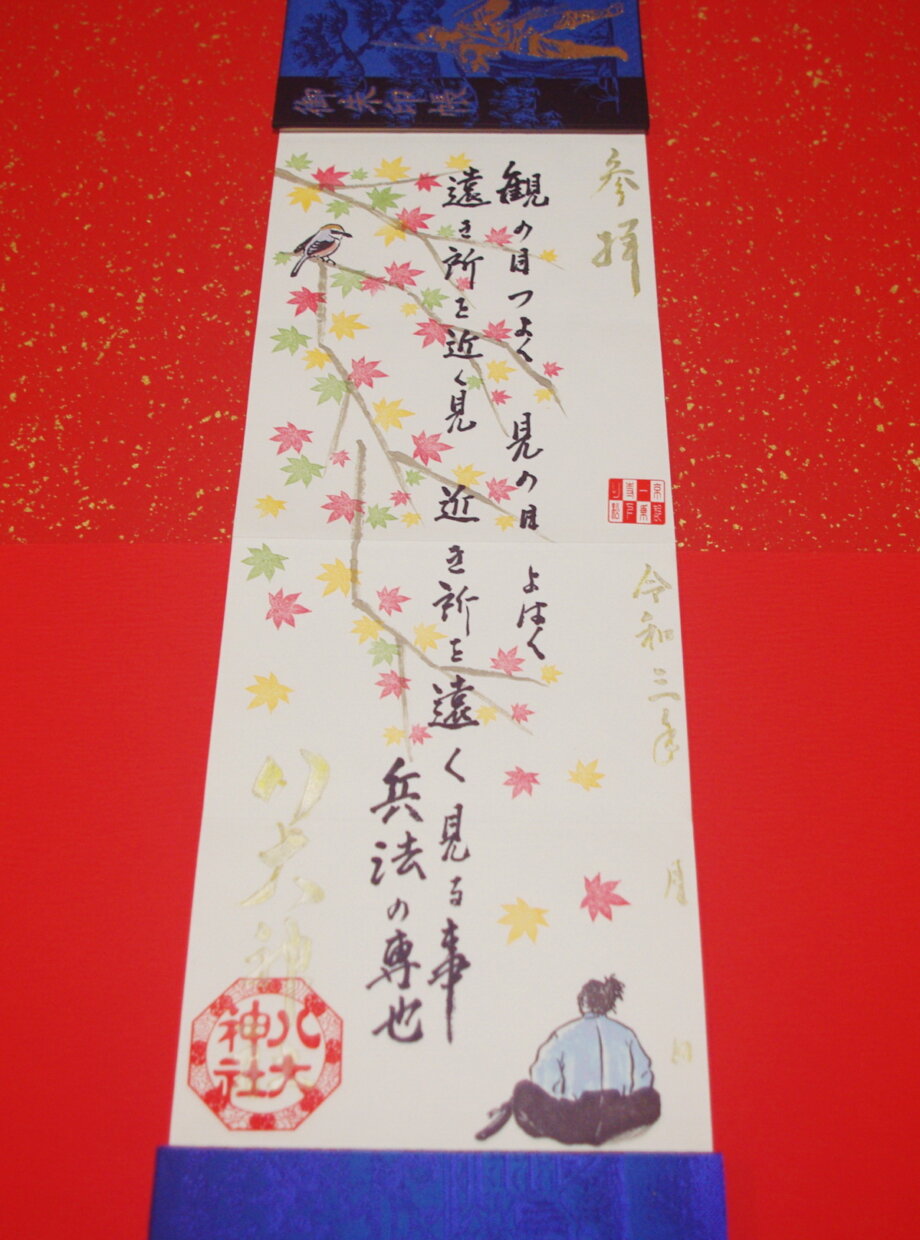 参拝
令和三年 月 日
観の目つよく 見の目 よはく
遠き所を近く見 近き所を遠く見る事
兵法の専也
八大神社
八大神社
御朱印帳